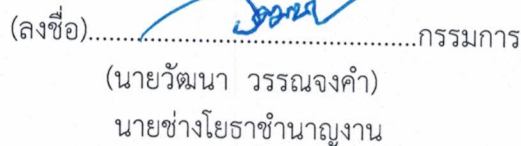 (ลงชื่อ)........................................กรรมการ
(นายวัฒนา วรรณจงคำ)
นายช่างโยธาชำนาญงาน